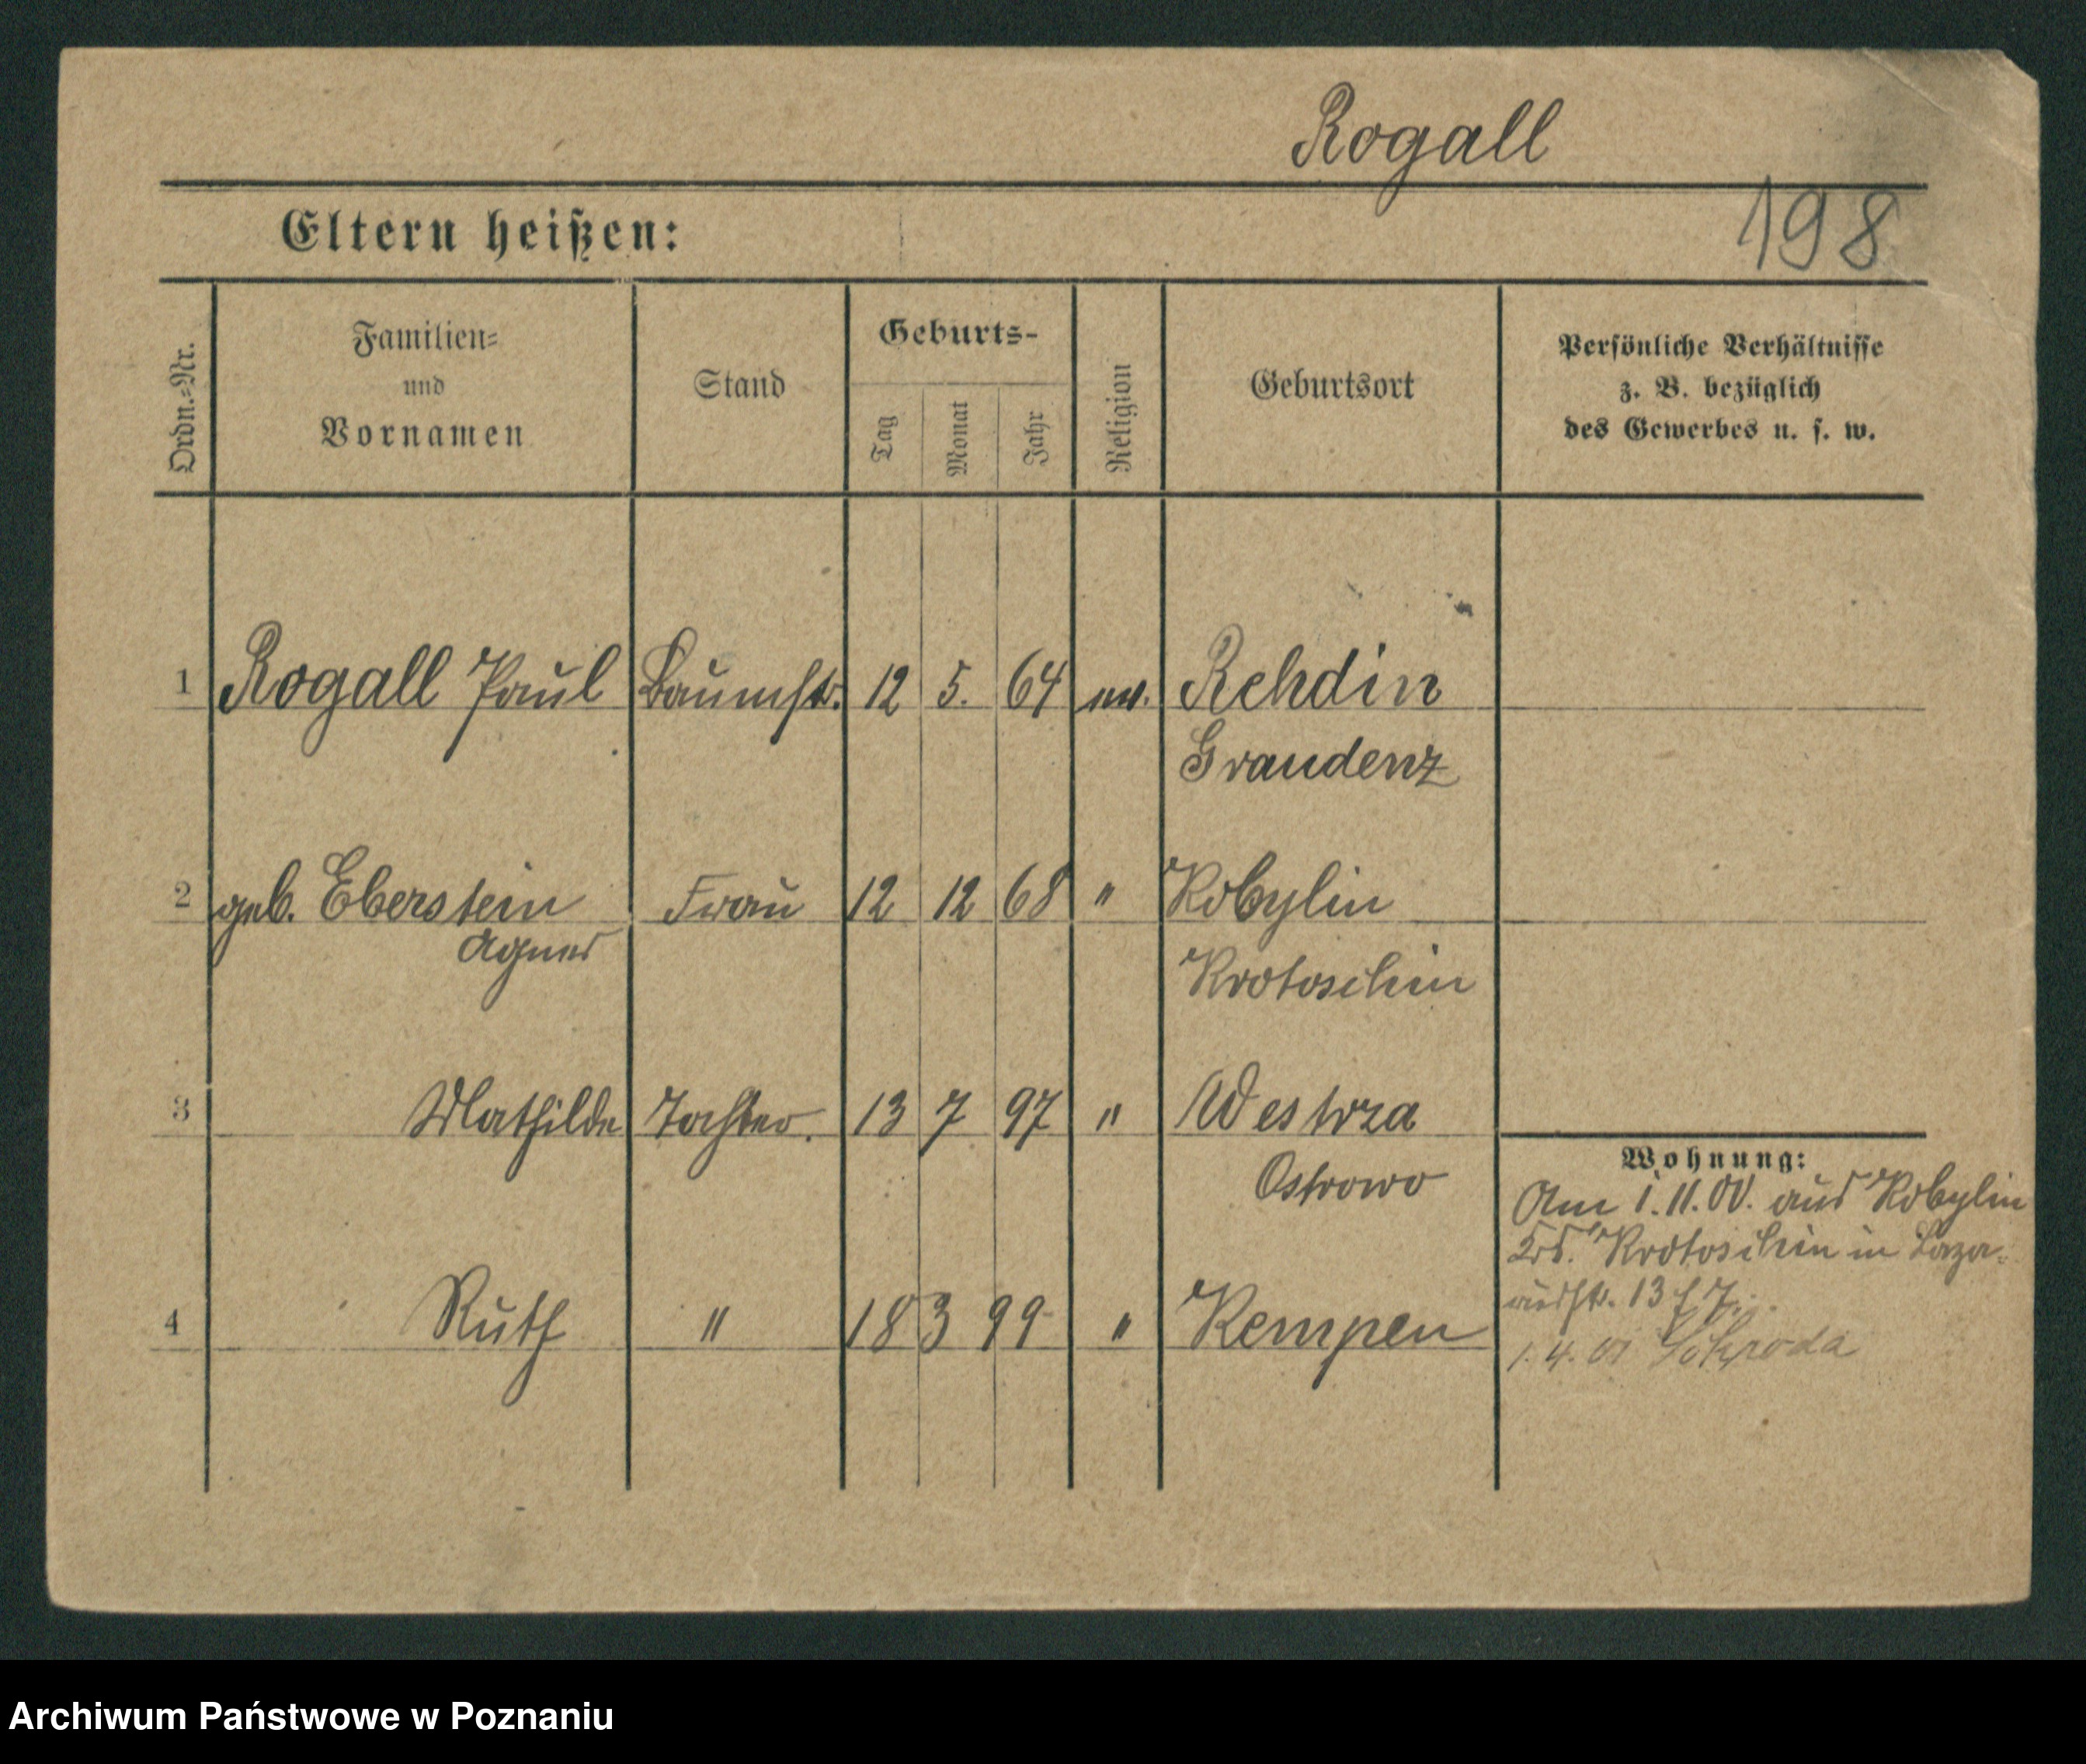 Rogall
198
Eltern heißen:
Ordn.=Nr.
Familien=
und
Vornamen
Stand
Geburts-
Tag
Monat
Jahr
Religion
Geburtsort
Persönliche Verhältnisse
z. B. bezüglich
des Gewerbes u. s. w.
1 Rogall Paul Baumstr. 12 5. 64 ev. Rehdin
Graudenz
2 geb. Eberstein Frau 12 12 68 " Kobylin
Agnes
Krotoschin
3 Mathilde Tochter. 13 7 97 " Westrza
Ostrowo
4 Ruth " 18 3 99 " Kempen
Wohnung:
Am 1.11.00. aus Kobylin
Krs. Krotoschin in Laza=
russtr. 13
1.4.01 Schroda
Archiwum Państwowe w Poznaniu